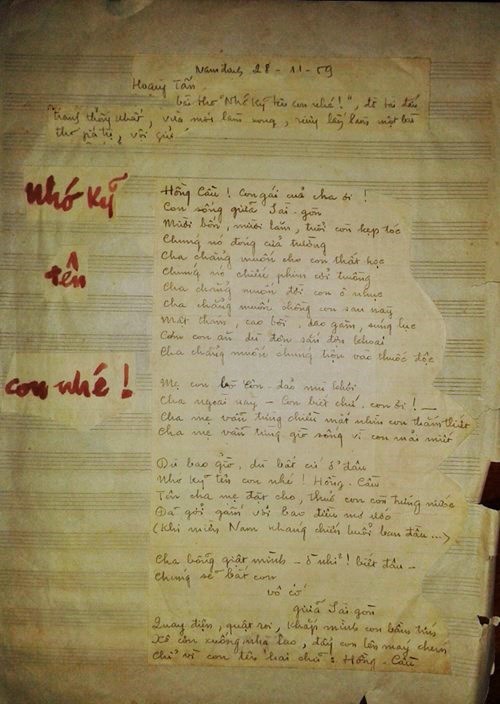 Nam định 28 - 11 - 59
Hoàng Tấn
bài thơ "Nhớ kỹ tên con nhé!", đề tài đấu
tranh thống nhất, vừa mới làm xong, rung lấy làm một bài
thơ giá trị, vội gửi
Nhớ kỹ
tên
con nhé!
Hồng Cầu! Con gái của cha ơi!
Con sống giữa Sài-gòn
Mười bốn, mười lăm, tuổi con kẹp tóc
Chúng nó đóng cửa trường
Cha chẳng muốn cho con thất học
Chúng nó chiếu phim cởi truồng
Cha chẳng muốn đời con ô nhục
Cha chẳng muốn chồng con sau này
Mắt thâm, cao bồi, dao găm, súng lục
Cơm con ăn dù độn sắn độn khoai
Cha chẳng muốn chúng trộn vào thuốc độc
Mẹ con ở Côn-đảo mù khơi
Cha ngoài này - Con biết chứ, con ơi! -
Cha mẹ vẫn từng chiều mắt nhìn con thắm thiết
Cha mẹ vẫn từng giờ sống vì con mải miết
Dù bao giờ, dù bất cứ ở đâu
Nhớ kỹ tên con nhé! Hồng-Cầu
Tên cha mẹ đặt cho, thuở con còn trứng nước
Đã gởi gắm với bao điều mơ ước
(Khi miền Nam kháng chiến buổi ban đầu...)
Cha bỗng giật mình - Ờ nhỉ! biết đâu -
Chúng sẽ bắt con
vô cớ
giữa Sài gòn
Quay điện, quật roi, khắp mình con bầm tím
Xô con xuống nhà lao, đẩy con lên máy chém
Chỉ vì con tên hai chữ: Hồng-Cầu